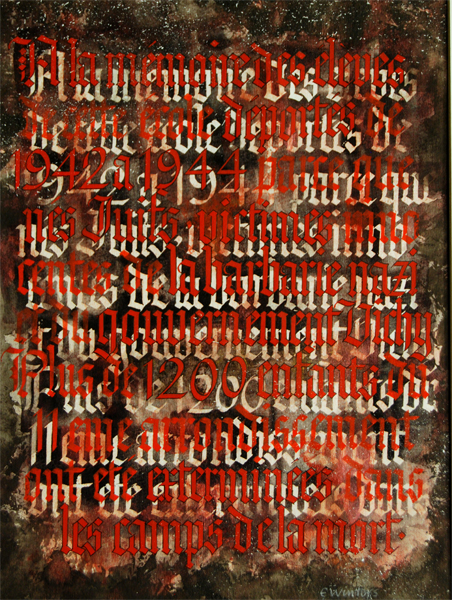 A la mémoire des élèves
de cette école déportés de
1942 à 1944 parce que
nés Juifs, victimes inno
centes de la barbarie nazi
et du gouvernement Vichy
Plus de 1200 enfants du
11ème arrondissement
ont été exterminés dans
les camps de la mort.
E Winters